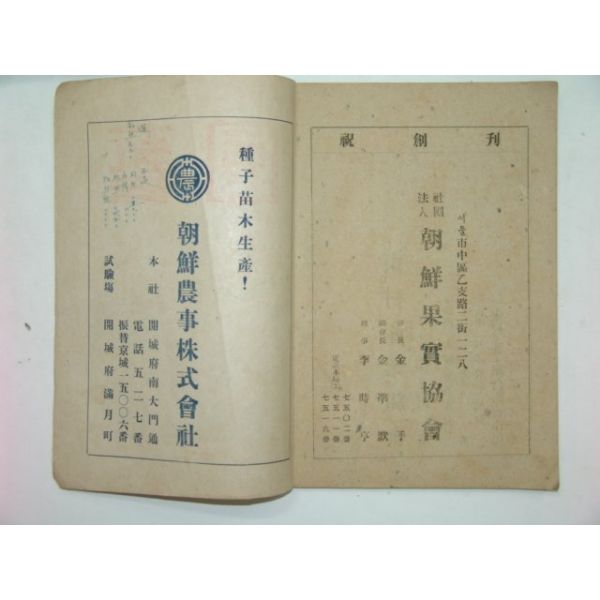 祝創刊
서울市中區乙支路二街一一八
社團法人
朝鮮果實協會
金
金
李時亨
七五〇二番
七五一一番
七五一九番
種子苗木生產!
農
朝鮮農事株式會社
本社 開城府南大門通
電話五二七番
振替京城一五〇〇六番
試驗場 開城府滿月町